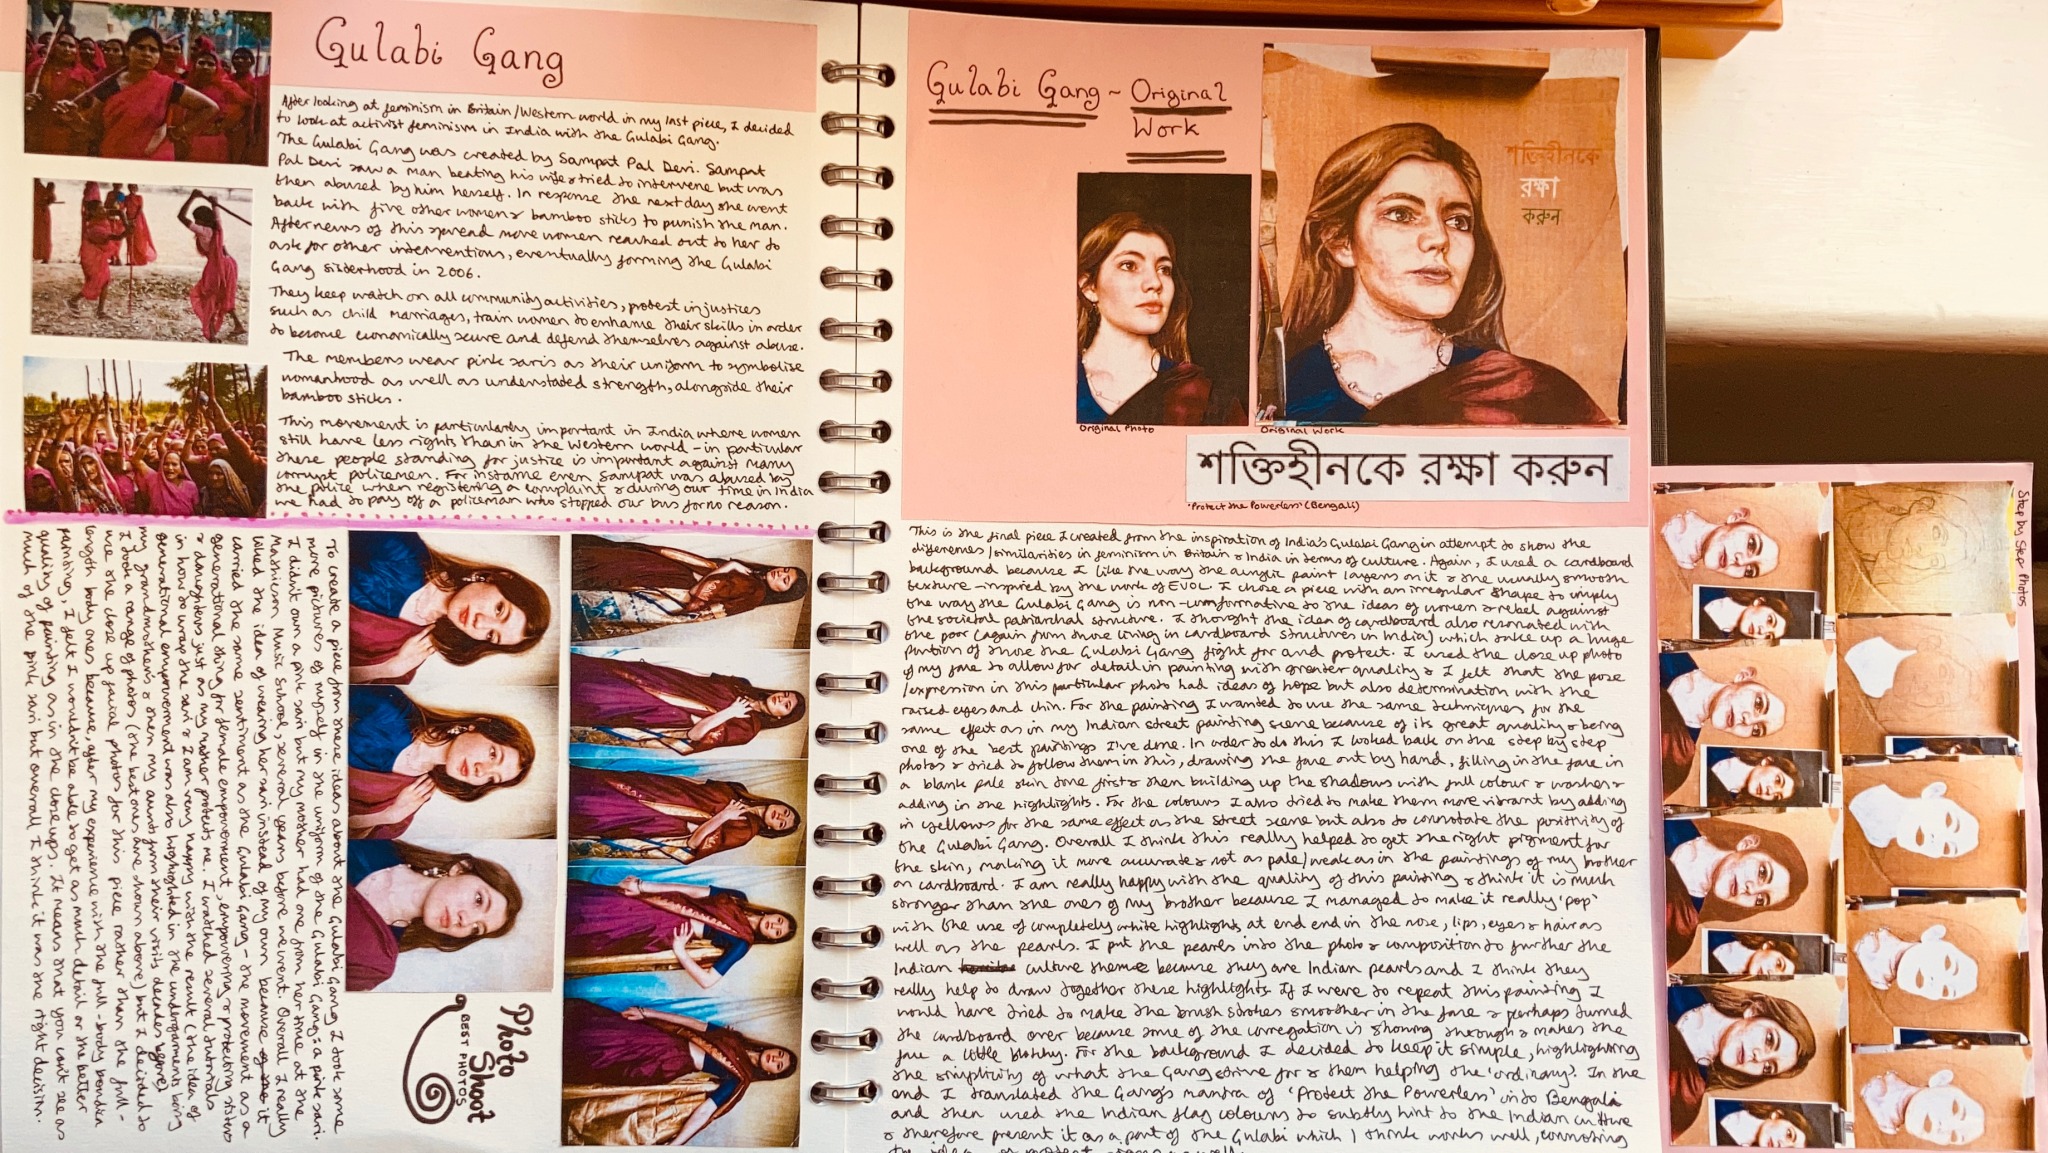 Gulabi Gang
After looking at feminism in Britain/Western world in my last piece, I decided
to look at activist feminism in India with the Gulabi Gang.
The Gulabi Gang was created by Sampat Pal Devi. Sampat
Pal Devi saw a man beating his wife & tried to intervene but was
then abused by him herself. In response the next day she went
back with five other women & bamboo sticks to punish the man.
After news of this spread more women reached out to her to
ask for other interventions, eventually forming the Gulabi
Gang sisterhood in 2006.
They keep watch on all community activities, protest injustices
such as child marriages, train women to enhance their skills in order
to become economically secure and defend themselves against abuse.
The members wear pink saris as their uniform to symbolise
womanhood as well as understated strength, alongside their
bamboo sticks.
This movement is particularly important in India where women
still have less rights than in the Western world - in particular
these people standing for justice is important against many
corrupt policemen. For instance even Sampat was abused by
the police when registering a complaint & during our time in India
we had to pay off a policeman who stopped our bus for no reason.
To create a piece from these ideas about the Gulabi Gang I took some
more pictures of myself in the uniform of the Gulabi Gang: a pink sari.
I didn't own a pink sari but my mother had one from her time at the
Music School, several years before we went. Overall I really
liked the idea of wearing her sari instead of my own because it
carried the same sentiment as the Gulabi Gang - the movement as a
generational thing for female empowerment, empowering & protecting sisters
& daughters just as my mother protects me. I watched several tutorials
in how to wrap the sari & I am very happy with the result (the idea of
generational empowerment was also highlighted in the undergarments being
my grandmother's & then my aunts from their visits decades before)
I took a range of photos (the best ones are shown above) but I decided to
use the close up facial photos for this piece rather than the full-
length body ones because, after my experience with the full-body
painting, I felt I wouldn't be able to get as much detail or the better
quality of painting as in the close ups. It means that you can't see as
much of the pink sari but overall I think it was the right decision.
Photo
Shoot
BEST PHOTOS
Gulabi Gang ~ Original
Work
শক্তিহীনকে
রক্ষা
করুন
Original Photo
Original Work
শক্তিহীনকে রক্ষা করুন
'Protect the Powerless' (Bengali)
This is the final piece I created from the inspiration of India's Gulabi Gang in attempt to show the
differences/similarities in feminism in Britain & India in terms of culture. Again, I used a cardboard
background because I like the way the acrylic paint layers on it & the usually smooth
texture - inspired by the work of EVOL. I chose a piece with an irregular shape to imply
the way the Gulabi Gang is non-conformative to the ideas of women & rebel against
the societal patriarchal structure. I thought the idea of cardboard also resonated with
the poor (again from those living in cardboard structures in India) which take up a huge
portion of those the Gulabi Gang fight for and protect. I used the close up photo
of my face to allow for detail in painting with greater quality & I felt that the pose
/expression in this particular photo had ideas of hope but also determination with the
raised eyes and chin. For the painting I wanted to use the same techniques for the
same effect as in my Indian street painting scene because of its great quality & being
one of the best paintings I've done. In order to do this I looked back on the step by step
photos & tried to follow them in this, drawing the face out by hand, filling in the face in
a blank pale skin tone first & then building up the shadows with full colour & washes &
adding in the highlights. For the colours I also tried to make them more vibrant by adding
in yellows for the same effect as the street scene but also to connotate the positivity of
the Gulabi Gang. Overall I think this really helped to get the right pigment for
the skin, making it more accurate & not as pale/weak as in the paintings of my brother
on cardboard. I am really happy with the quality of this painting & think it is much
stronger than the ones of my brother because I managed to make it really 'pop'
with the use of completely white highlights at end end in the nose, lips, eyes & hair as
well as the pearls. I put the pearls into the photo & composition to further the
Indian culture theme because they are Indian pearls and I think they
really help to draw together these highlights. If I were to repeat this painting I
would have tried to make the brush strokes smoother in the face & perhaps turned
the cardboard over because some of the corregation is showing through & makes the
face a little blotchy. For the background I decided to keep it simple, highlighting
the simplicity of what the Gang strive for & them helping the 'ordinary'. In the
end I translated the Gang's mantra of 'Protect the Powerless' into Bengali
and then used the Indian flag colours to subtly hint to the Indian culture
& therefore present it as a part of the Gulabi which I think works well, connoting
Step by Step Photos